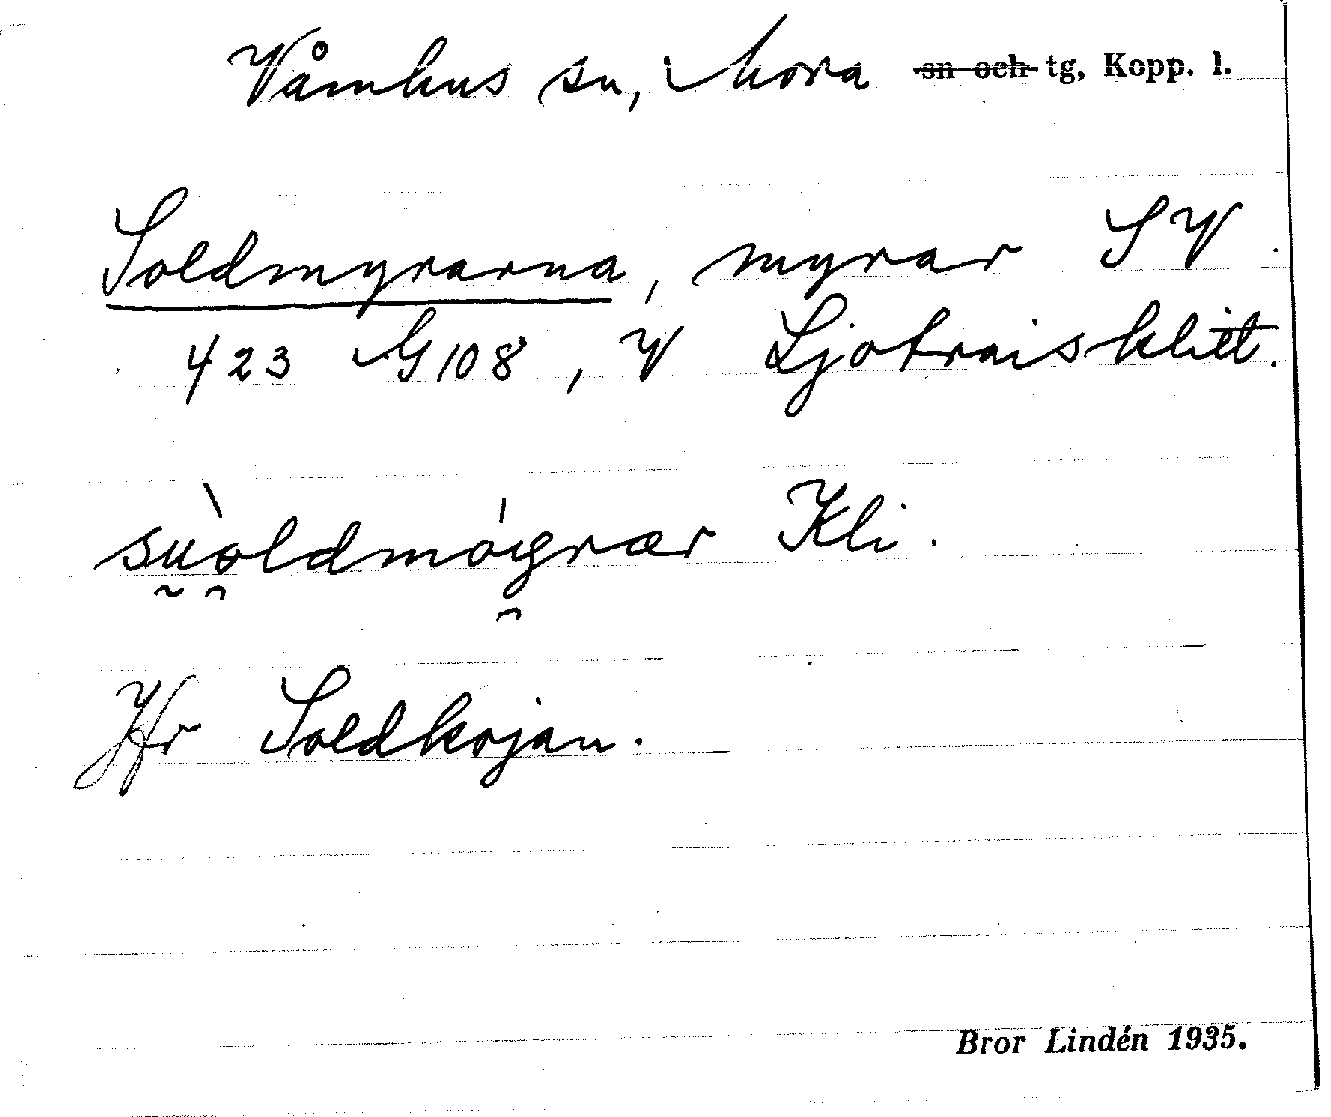 Våmhus sn, Mora sn och tg, Kopp. l.
Soldmyrarna, myrar SV
423 G108, V Ljotraisklitt.
sùoldmóyrær Kli.
Jfr Soldkojan.
Bror Lindén 1935.